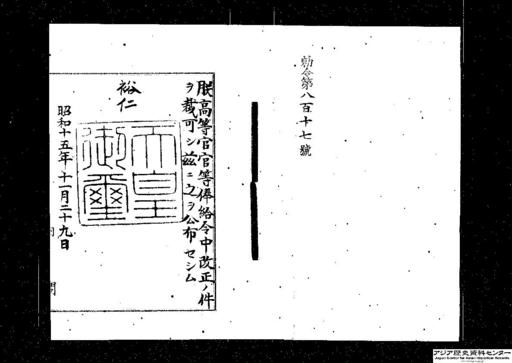 勅令第八百十七號
朕高等官官等俸給令中改正ノ件
ヲ裁可シ茲ニ之ヲ公布セシム
裕仁
天皇御璽
昭和十五年十一月二十九日
アジア歴史資料センター
Japan Center for Asian Historical Records